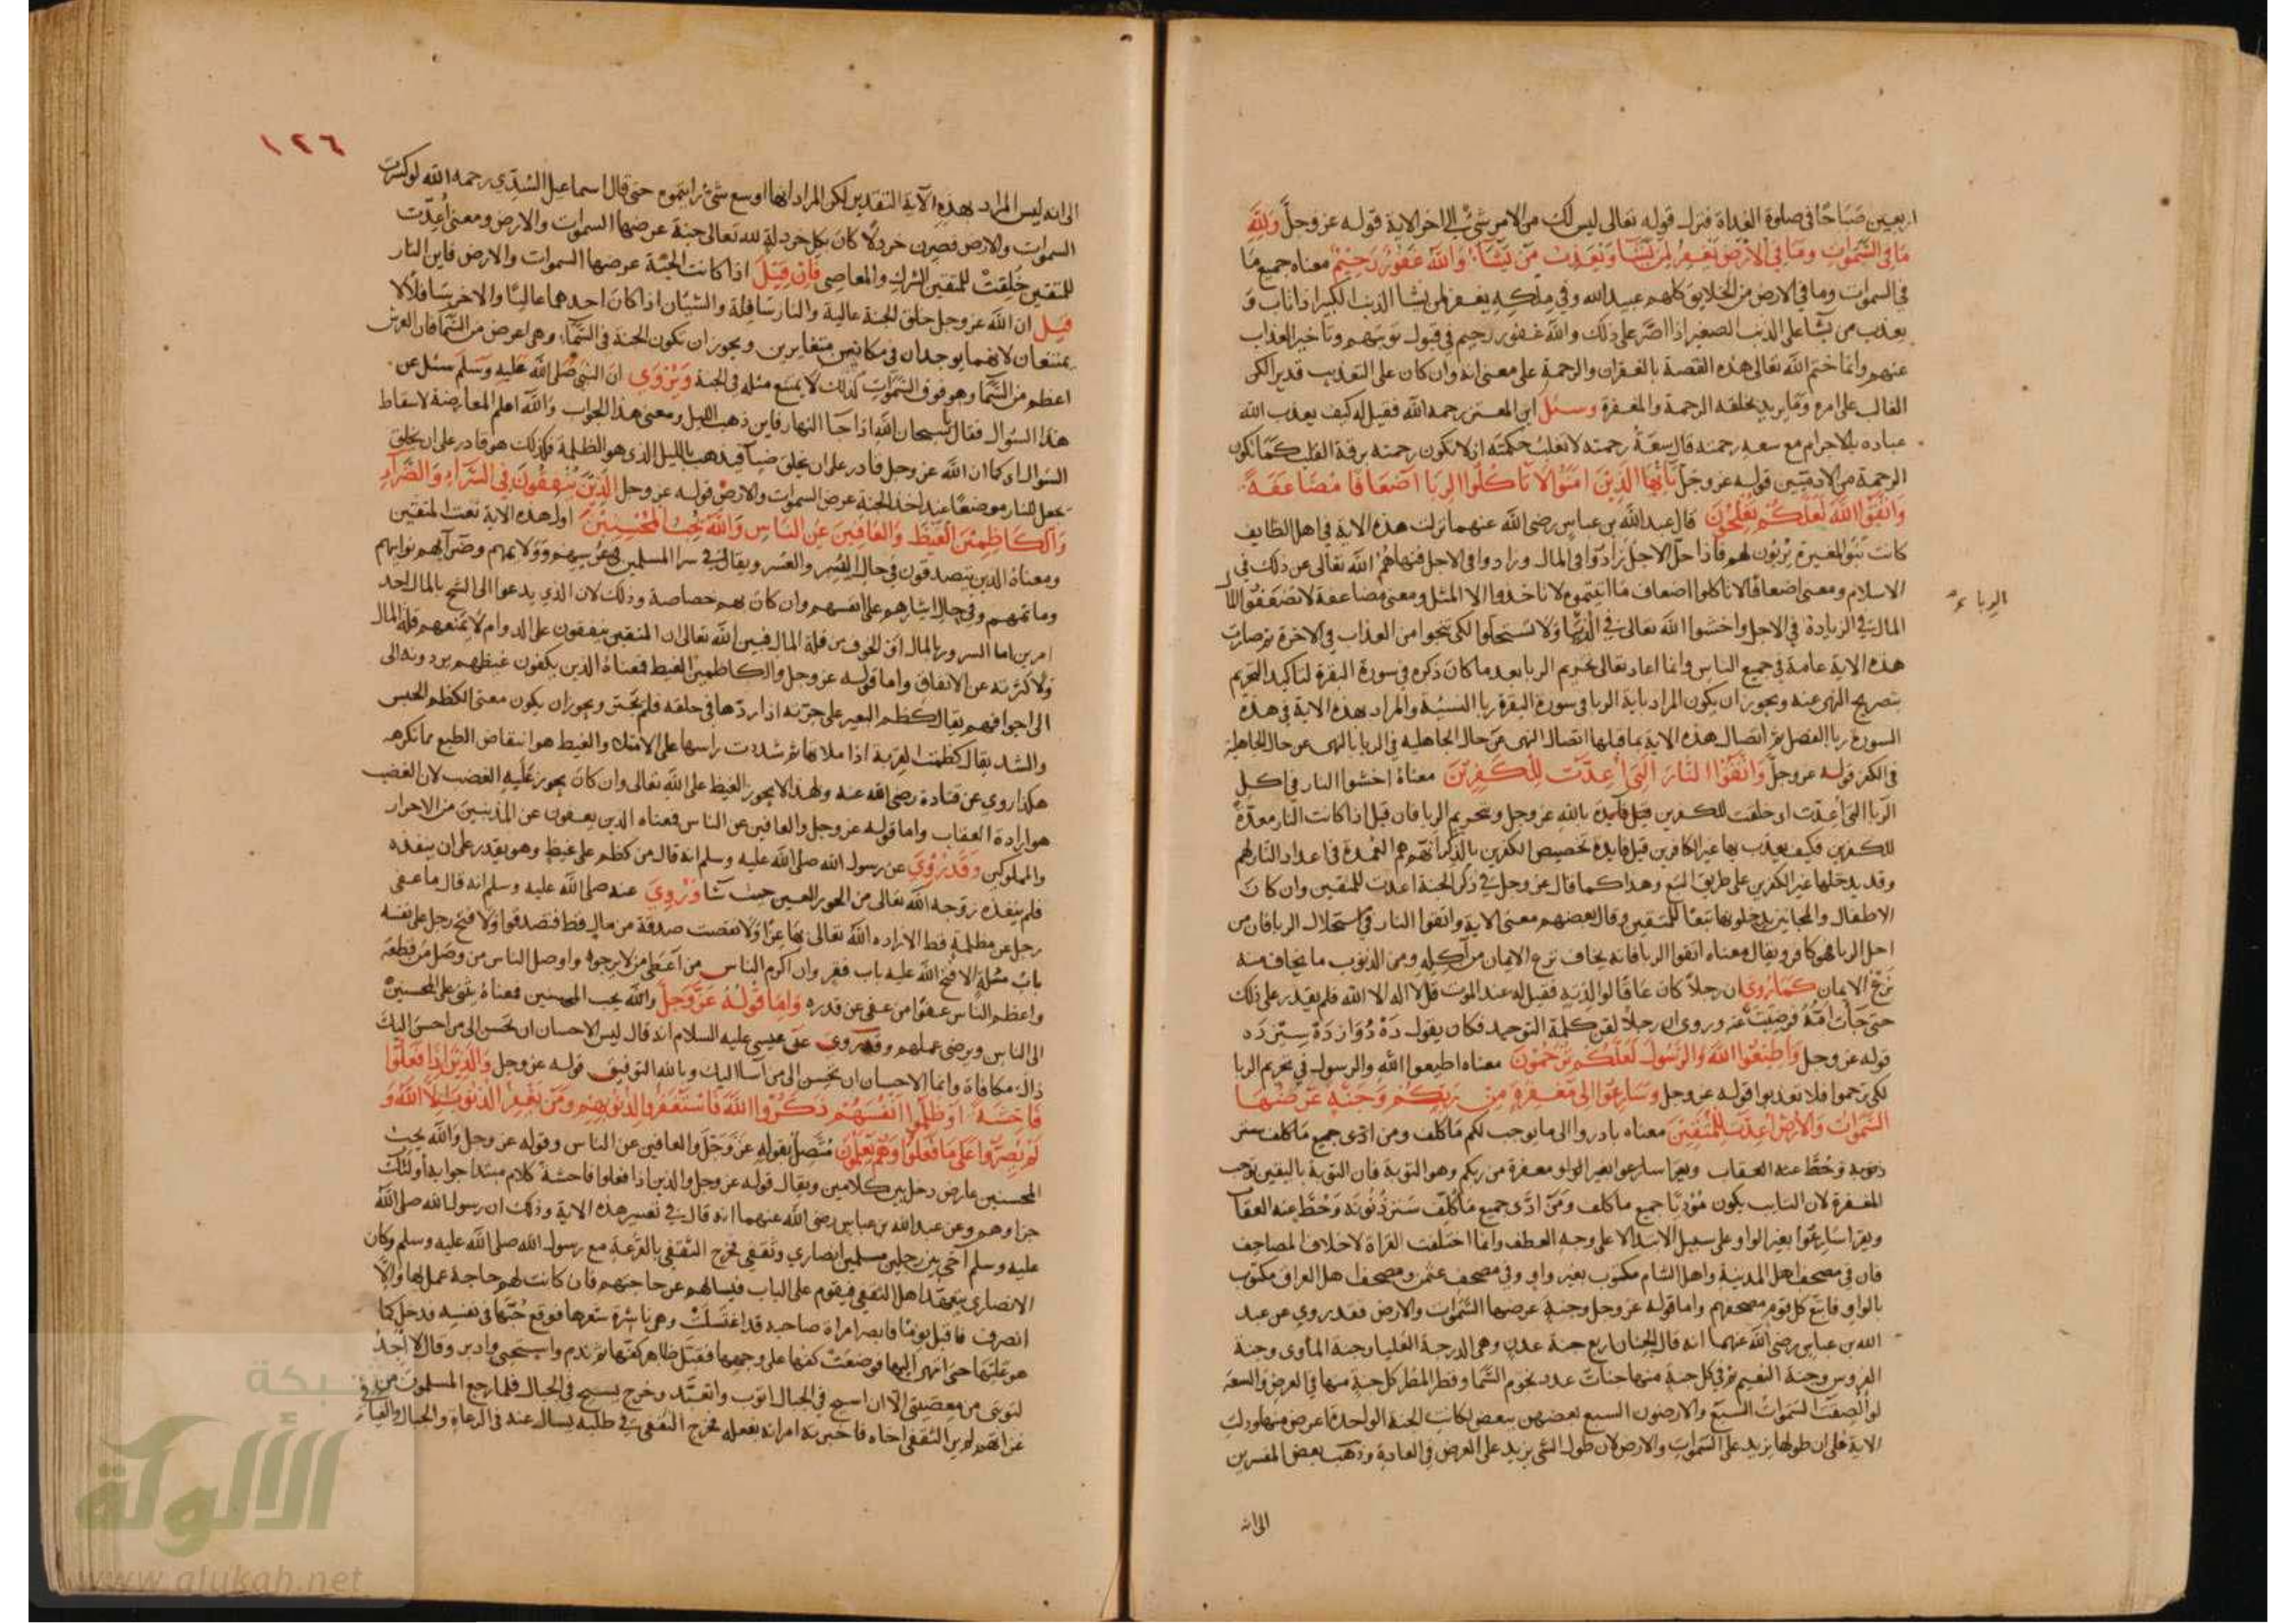 اربعين صَبَاحًا في صلوة الغداة فنزل قوله تعالى ليس لك من الامر شيٌ الى اخر الاية قوله عز وجلَّ وَللَّهِ
مَا في السَّمَواتِ ومَا في الْأَرْضِ يَغفِرُ لِمَنْ يَشَآءُ وَيُعَذِّبُ مَنْ يَشَآءُ وَاللهُ غَفُوْرٌ رَحِيْمٌ معناه جميع مَا
في السموات وما في الارض من الخلايق كلهم عبيد الله وفي مِلكِهِ يغفر لمن يشا الذنب الكبير اذا تاب وَ
يعذب من يشا على الذنب الصغير اذا اصَّر على ذلك والله غفور رحيم في قبول توبتهم وتاخير العذاب
عنهم وانما ختم الله تعالى هذه القصة بالغفران والرحمة على معنى انه وان كان على التعذيب قدير الكن
الغالب على امره ومَا يريد بخلقه الرحمة والمغفرة وسئل ابن المعتز رحمه الله فقيل له كيف يعذب الله
عباده بالاجرام مع سعه رحمته قال سِعَةُ رحمته لا تغلبُ حكمته اذ لا تكون رحمته برقة القلب كمَا تكون
الرحمة من الادميّين قوله عز وجَل يَآأَيُّهَا الَّذِيْنَ امَنُوْا لَا تَاْكُلُوا الرِبَا اَضْعَافًا مُضَاعَفَةً
وَاتَّقُوْا اللَّهَ لَعَلَّكُمْ تُفْلِحُوْنَ قال عبد الله بن عباس رضي الله عنهما نزلت هذه الاية في اهل الطايف
كانت بَنُو المغيرة يُرْبُون لهم فاذا حلّ الاجلُ زَادُوْا في المال وزادوا في الاجل فنهَاهُمْ الله تعالى عن ذلك في
الاسلام ومعنى اضعافًا لا تاكلوا اضعاف مَا اتيتموه لا تاخذوا الا المثل ومعنى مضاعفة لا تُضعّفُوْا
الربا
المال في الزيادة في الاجل واخشوا الله تعالى في الدنيا وَلا تستحلوا لكى تنجوا من العذاب في الاخرة ثم صارت
هذه الاية عامة في جميع الناس وانما اعاد تعالى تحريم الربا بعد ما كان ذكره في سورة البقرة لتاكيد التحريم
بتصريح النهى عنه ويجوز ان يكون المراد باية الربا في سورة البقرة ربا النسيئة والمراد بهذه الاية في هذه
السورة ربا الفضل ثم اتصال هذه الاية بما قبلها اتصال النهى عن حال الجاهليه في الربا بالنهى عن حال الجاهلية
في الكفر قوله عز وجلَّ وَاتَّقُوْا النَّارَ الَّتِىْ أُعِدَّتْ لِلْكَفِرِيْنَ معناهُ اخشوا النار في اكل
الرّبا التى أُعِدّت اى خلقت للكفرين قبل بالله عز وجل وتحريم الربا فان قيل اذا كانت النار معدّةً
للكفرين فكيف يعذب بها غير الكافرين قيل فايدة تخصيص الكفرين بالذكر انهم هم العُمْدة في اعداد النار لهم
وقد يدخلها غير الكفرين على طريق التبع وهذا كما قال عز وجل في ذكر الجنة اعدت للمتقين وان كان
الاطفال والمجانين يدخلونها تبعًا للمتقين وقال بعضهم معنى الاية واتقوا النار في استحلال الربا فان من
احل الربا فهو كافر ويقال معناه اتقوا الربا فانه يخاف نزع الايمان من آكِلِهِ ومن الذنوب ما يخاف منه
نَزْعُ الايمان كمَا رُوِىَ ان رجلاً كان عاقًّا لوالديه فقيل له عند الموت قل لا اله الا الله فلم يقدر على ذلك
حتى جآت امّهُ فرضِيَتْ عنه وروى ان رجلاً لقن كلمة التوحيد فكان يقول دَهْ دُوَازْدَهْ سِيْزْدَه
قوله عز وجل وَاَطِيْعُوْا اللَّهَ وَالرَّسُوْلَ لَعَلَّكُمْ تُرْحَمُوْنَ معناه اطيعوا الله والرسول في تحريم الربا
لكى ترحموا فلا تعذبوا قوله عز وجل وَسَارِعُوْا اِلى مَغْفِرَةٍ مِنْ رَبِكُمْ وَجَنَّةٍ عَرْضُهَا
السَّمَوَاتُ وَالْاَرْضُ اُعِدَّتْ لِلْمُتَّقِيْنَ معناه بادروا الى ما يوجب لكم مَا كلف ومن ادّى جميع مَا كلف ستر
ذنوبه وَحُطَّ عنه العقاب ويقرا سارعوا بغير الواو مغفرة من ربكم وهو التوبة فان التوبة باليقين توجب
المغفرة لان التايب يكون مُؤَدّيًا جميع ما كلف ومَنْ ادَّى جميع مَا كُلِّفَ سَترَ ذُنُوْبَه وَحُطَّ عنه العقاب
ويقرا سَارِعُوْا بغير الواو على سبيل الابتدا لا على وجه العطف وانما اختلفت القراة لاختلاف المصاحف
فان في مصحف اهل المدينة واهل الشام مكتوب بغير واو وفي مصحف عثمن ومصحف اهل العراق مكتوب
بالواو فاتبع كل قوم مصحفهم واما قوله عز وجل وجنةٍ عرضها السَّمَواتُ والارض فقد روي عن عبد
الله بن عباس رضي الله عنهما انه قال الجنان اربع جنة عدن وهي الدرجة العليا وجنة المأوى وجنة
الفردوس وجنة النعيم ثم في كل جنةٍ منها جناتٌ عدد نجوم السَّمَا وقطر المطر كل جنةٍ منها في العرض والسعة
لو اُلصِقَتْ السَّمَواتُ السَّبْع والارضون السبع بعضهن ببعض لكانت الجنة الواحدة اعرض منها ودلت
الاية على ان طولها يزيد على السَّمواتِ والارض لان طول الشى يزيد على العرض في العادة وذهب بعض المفسرين
الى انه
١٢٦
الى انه ليس المراد بهذه الآية التقدير لكن المراد انها اوسع شئ رايتموه حتى قال اسماعيل السُّدّي رحمه الله لو كسرت
السموات والارض فصرن خردلًا كان بكل خردلةٍ لله تعالى جنة عرضها السموات والارض ومعنى اُعِدّت
للمتقين خُلِقتْ للمتقين الشرك والمعاصى فَاِنْ قِيْلَ اذا كانت الجنّة عرضها السموات والارض فاين النار
قِيْلَ ان الله عز وجل خلق الجنة عالية والنار سَافِلة والشيئان اذا كان احدهما عاليًا والاخر سَافلًا لا
يمتنعان لانهما يوجدان في مكانين متغايرين ويجوز ان تكون الجنة في السَّمَآء وهى اعرض من السَّمَا فان العرش
اعظم من السَّمَا وهو فوق السَّمَوَاتِ كذلك لا يمتنع مثله في الجنة وَيُرْوَى انّ النبي صَلَّى اللهُ عَلَيْهِ وَسَلَّمَ سئل عن
هذا السؤال فقال سُبحان الله اذا جَآ النهار فاين ذهب الليل ومعنى هذا الجواب وَالله اعلم المعارضة لاسقاط
السؤال اى كما ان الله عز وجل قادر على ان يخلق ضيآ فيذهب بالليل الذى هو الظلمة فكذلك هو قادر على ان يخلق
يجعل للنار موضعًا عند اخذ الجنة عرض السموات والارض قوله عز وجل الَّذِيْنَ يُنْفِقُوْنَ فِى السَّرَّاءِ وَالضَّرَّاءِ
وَالْكَاظِمِيْنَ الْغَيْظَ وَالْعَافِيْنَ عَنِ النَاسِ وَاللهُ يُحِبُّ الْمُحْسِنِيْنَ اول هذه الاية نعت المتقين
ومعناهُ الذين يتصدقون في حال اليُسْرِ والعُسْر ويقال في سرا المسلمين وولايمهم وضرآيهم نوايبهم
وماتمهم وفي حال ايثارهم على انفسهم وان كان بهم خصاصة وذلك لان الذي يدعوا الى الشح بالمال احد
امرين اما السرور بالمال او الخوف من قلة المال فبين الله تعالى ان المتقين ينفقون على الدوام لا يمنعهم قلة المال
ولا كثرته عن الانفاق واما قوله عز وجل والكاظمين الغيظ فمعناهُ الذين يكفون غيظهم يردونه الى
الى اجوافهم يقال كَظم البعير على جرّته اذا ردّها في حلقه فلم يجتر ويجوز ان يكون معنى الكظم الحبس
والشد يقال كظمت القربة اذا ملاتها ثم شددت راسها على الامتلا والغيظ هو انتقاض الطبع مما تكرهه
هكذا روي عن قتادة رضي الله عنه ولهذا لا يجوز الغيظ على الله تعالى وان كان يجوز عَلَيه الغضب لان الغضب
هو ارادة العقاب واما قوله عز وجل والعافين عن الناس فمعناه الذين يعفون عن المذنبين من الاحرار
والمملوكين وَقَدْ رُوِيَ عن رسول الله صلى الله عليه وسلم انه قال من كظم على غيظٍ وهو يقدر على ان ينفذه
فلم ينفذه زوّجه الله تعالى من الحور العين حيث شَا وَرُوِيَ عنه صلى الله عليه وسلم انه قال ما عفى
رجل عن مظلمة قط الا زاده اللهُ تعالى بها عِزًّا وَلا نقصت صدقة من مالٍ قط فتصدقوا وَلَا فتح رجل على نفسه
بابَ مسْلةٍ الا فتح الله عليه باب فقر وان اكرم الناس من اَعْطى من لا يرجوه واوصل الناس من وصَل من قطعه
واعظم الناس عفوًا من عفى عن قدره وَامَا قَوْلُهُ عَزَّ وَجَلَّ والله يحب المحسنين فمعناهُ يثنى على المحسنين
الى الناس ويرضى عملهم وقد رُوِى عن عيسى عليه السلام انه قال ليس الاحسان ان تحسن الى من احسن اليك
ذاك مكافاة وانما الاحسان ان تحسن الى من اسآ اليك وبالله التوفيق قوله عز وجل وَالَّذِيْنَ اِذَا فَعَلُوْا
فَاحِشَةً اَوْ ظَلَمُوا اَنْفُسَهُمْ ذَكَرُوا اللَّهَ فَاسْتَغْفَرُوا لِذُنُوْبِهِمْ ومَنْ يَغْفِرُ الذُنُوْبَ اِلَّا اللهُ وَ
لَمْ يُصِرُّوْا عَلَى مَا فَعَلُوْا وَهُمْ يَعْلَمُوْنَ مُتَّصِلٌ بقوله عَزَّ وَجَلَّ والعافين عن الناس وقوله عز وجل وَالله يحبُّ
المحسنين عارض دخل بين كلامين ويقال قوله عز وجل والذين اذا فعلوا فاحشة كلام مبتدا جوابه أُولَئِكَ
جزاوهم وعن عبد الله بن عباس رضي الله عنهما انه قال في تفسير هذه الاية وذلك ان رسول الله صلى الله
عليه وسلم آخى بين رجلين مسلمين انصاري وثقفي فخرج الثقفي بالقرعة مع رسول الله صلى الله عليه وسلم وكان
الانصاري يتعهّد اهل الثقفي فيقوم على الباب فيسالهم عن حاجتهم فان كانت لهم حاجة عمل بها والّا
انصرف فاقبل يومًا فابصر امراة صاحبه قد اغتسلَتْ وهي ناشرة شعرها فوقع حُبّها في نفسه فدخل كما
هو عَلَيْهَا حتى انتهى اليها فوضعَتْ كفها على وجهها فقبّل ظاهر كفّها ثم ندم واستحيى وادبر وقال لا اَجِدُ
لتوبتى من معصِيتى الّا ان اسيح في الجبال اتوب واتعبَّد وخرج يسيح في الجبال فلما رجع المسلمون من
غزاتهم لم ير الثقفى اخاه فاخبرته امراته بفعله فخرج الثقفى في طلبه يسال عنه في الرعاة والجبال
شبكة
الألوكة
www.alukah.net